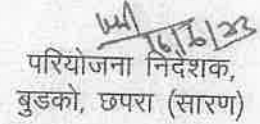 16/6/23
परियोजना निदेशक,
बुडको, छपरा (सारण)